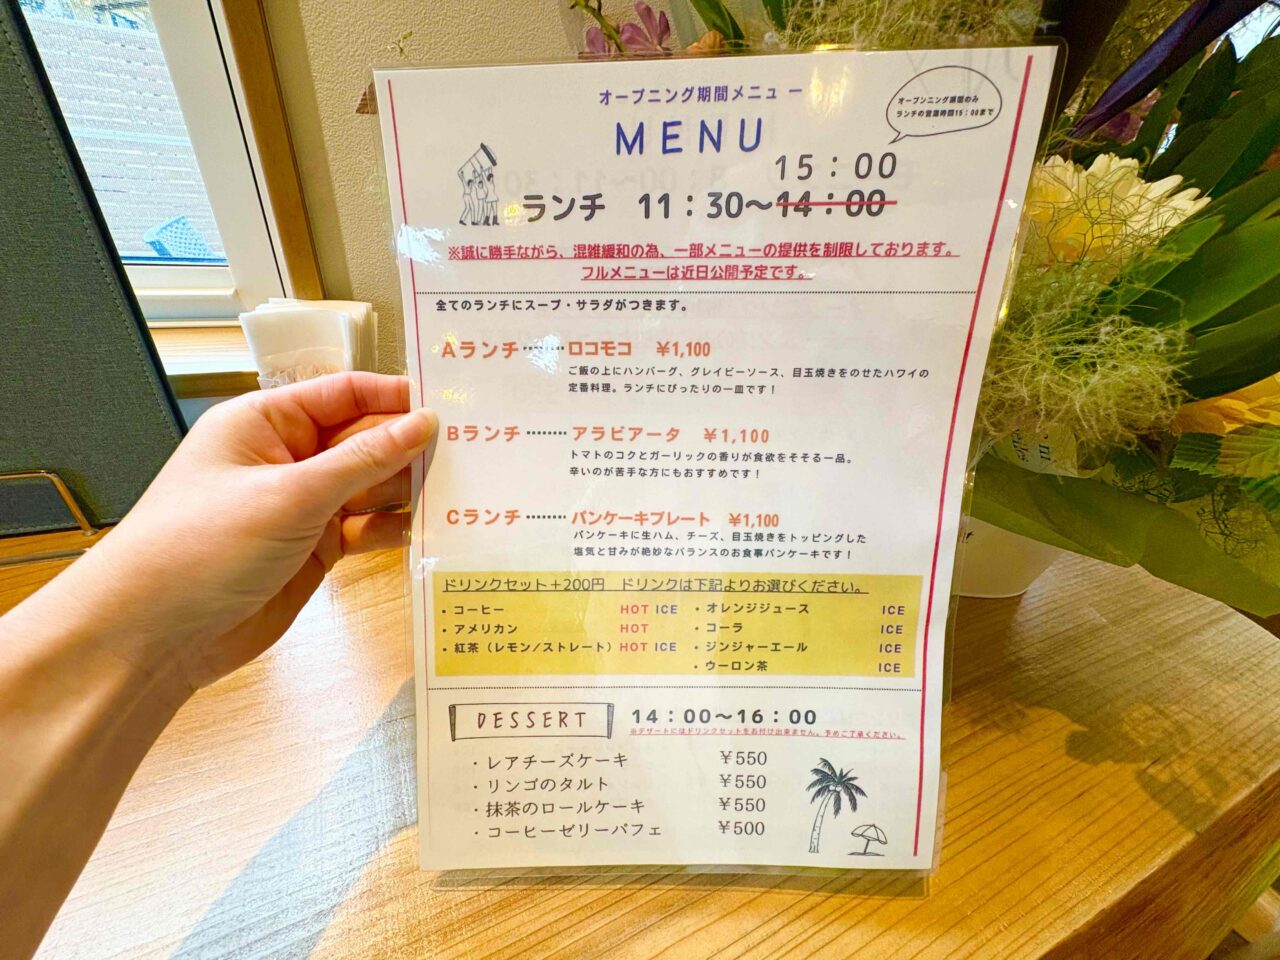 オープニング期間メニュー
オープンニング期間のみ
ランチの営業時間15：00まで
MENU
15：00
ランチ　11：30～14：00
※誠に勝手ながら、混雑緩和の為、一部メニューの提供を制限しております。
フルメニューは近日公開予定です。
全てのランチにスープ・サラダがつきます。
Aランチ………ロコモコ　￥1,100
ご飯の上にハンバーグ、グレイビーソース、目玉焼きをのせたハワイの
定番料理。ランチにぴったりの一皿です！
Bランチ………アラビアータ　￥1,100
トマトのコクとガーリックの香りが食欲をそそる一品。
辛いのが苦手な方にもおすすめです！
Cランチ………パンケーキプレート　￥1,100
パンケーキに生ハム、チーズ、目玉焼きをトッピングした
塩気と甘みが絶妙なバランスのお食事パンケーキです！
ドリンクセット＋200円　ドリンクは下記よりお選びください。
・コーヒー　HOT ICE
・アメリカン　HOT
・紅茶（レモン/ストレート）HOT ICE
・オレンジジュース　ICE
・コーラ　ICE
・ジンジャーエール　ICE
・ウーロン茶　ICE
DESSERT　14：00～16：00
※デザートにはドリンクセットをお付け出来ません。予めご了承ください。
・レアチーズケーキ　￥550
・リンゴのタルト　￥550
・抹茶のロールケーキ　￥550
・コーヒーゼリーパフェ　￥500